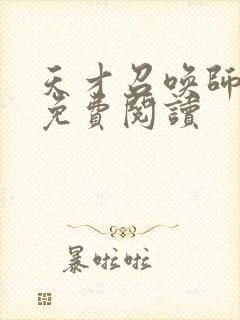 天才召喚師
免費閱讀
暴啦啦